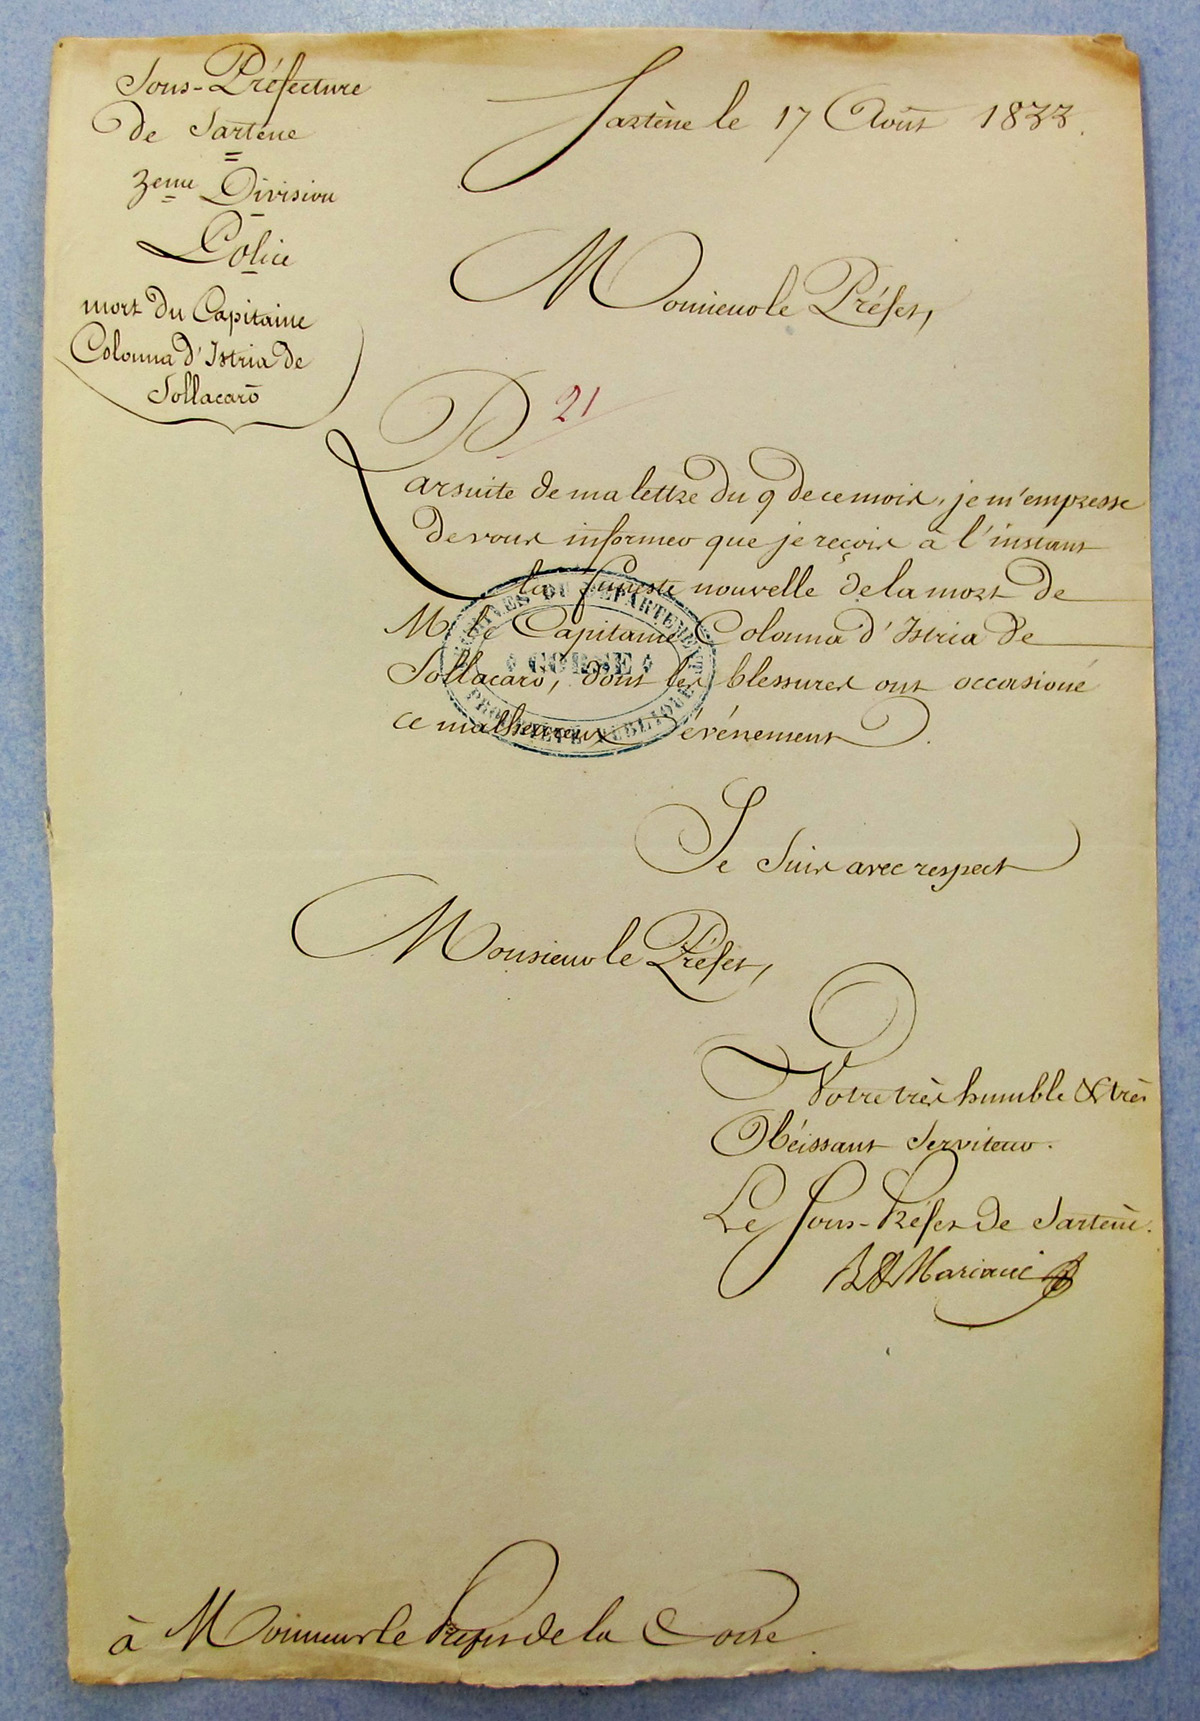 Sous-Préfecture
de Sartène
3eme Division
Police
mort du Capitaine
Colonna d'Istria de
Sollacaro
Sartène le 17 Août 1833.
Monsieur le Préfet,
21
Par suite de ma lettre du 9 de ce mois, je m'empresse
de vous informer que je reçois à l'instant
la funeste nouvelle de la mort de
Mr le Capitaine Colonna d'Istria de
Sollacaro, dont les blessures ont occasioné
ce malheureux événement.
ARCHIVES DU DÉPARTEMENT
CORSE
PROPRIÉTÉ PUBLIQUE
Je suis avec respect
Monsieur le Préfet,
Votre très humble & très
Obéissant Serviteur.
Le Sous-Préfet de Sartène.
Mariani
à Monsieur le Préfet de la Corse.